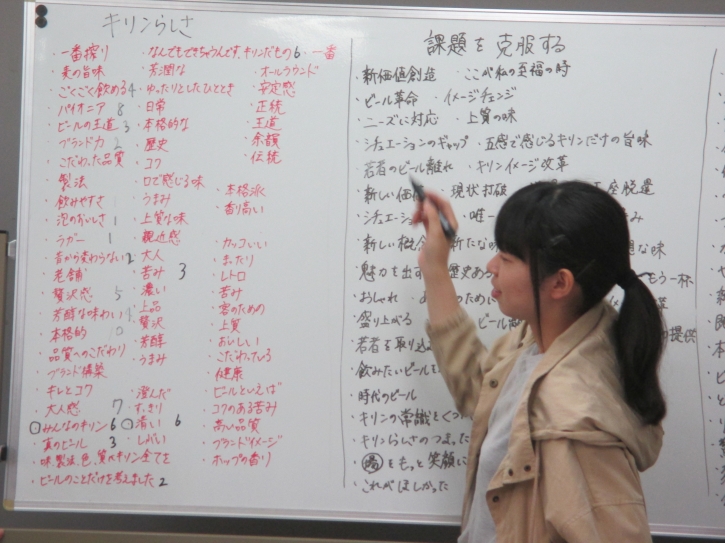 キリンらしさ
・一番搾り
・麦の旨味
・ごくごく飲める 4
・パイオニア 8
・ビールの王道 3
・ブランド力 2
・こだわった品質
・製法
・飲みやすさ
・泡のおいしさ 1
・ラガー 1
・昔から変わらない 2
・老舗
・贅沢感 5
・芳醇な味わい
・本格的
・品質へのこだわり
・ブランド構築
・キレとコク
・大人感 7
・みんなのキリン 6
・真のビール 3
・味、製法、色、質 キリン全てを
・ビールのことだけを考えました 2
・なんでもできちゃうんです、キリンだもの 6
・芳潤な
・ゆったりとしたひととき
・日常
・本格的な
・歴史
・コク
・口で感じる味
・うまみ
・上質な味
・親近感
・大人
・苦み 3
・濃い
・上品
・贅沢
・芳醇
・うまみ
・澄んだ
・すっきり
・清い 6
・しぶい
・一番
・オールラウンド
・安定感
・正統
・王道
・余韻
・伝統
・本格派
・香り高い
・カッコいい
・まったり
・レトロ
・苦み
・客のための
・上質
・おいしい
・こだわっている
・健康
・ビールといえば
・コクのある苦み
・高い品質
・ブランドイメージ
・ホップの香り
課題を克服する
・新価値創造 ・ここが私の至福の時
・ビール革命 ・イメージチェンジ
・ニーズに対応 ・上質の味
・シチュエーションのギャップ ・五感で感じるキリンだけの旨味
・若者のビール離れ ・キリンイメージ改革
・新しい価値 ・現状打破
・シチュエーション ・唯一
・新しい概念 味
・魅力を出す 歴史あ もう一杯
・おしゃれ
・盛り上がる ビール の提供
・若者を取り込
・飲みたいビール
・時代のビール
・キリンの常識をくつ
・キリンらしさのつまった
をもっと笑顔に
・これがほしかった